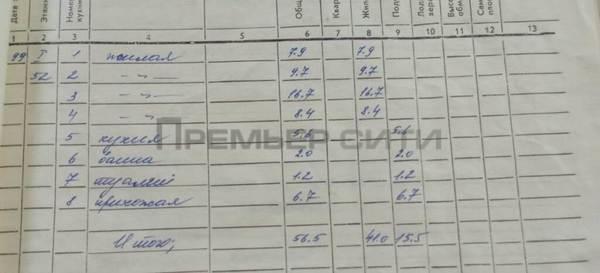 Дата
Этаж
Номер
кухни
Общ
Квар
Жил
Под
1 2 3 4 5 6 7 8 9 10 11 12 13
99 I 1 жилая 7.9 7.9
52 2 -"- 9.7 9.7
3 -"- 16.7 16.7
4 -"- 8.4 8.4
ПРЕМЬЕР СИТИ
5 кухня 5.6 5.6
6 ванна 2.0 2.0
7 туалет 1.2 1.2
8 прихожая 6.7 6.7
Итого; 56.5 41.0 15.5